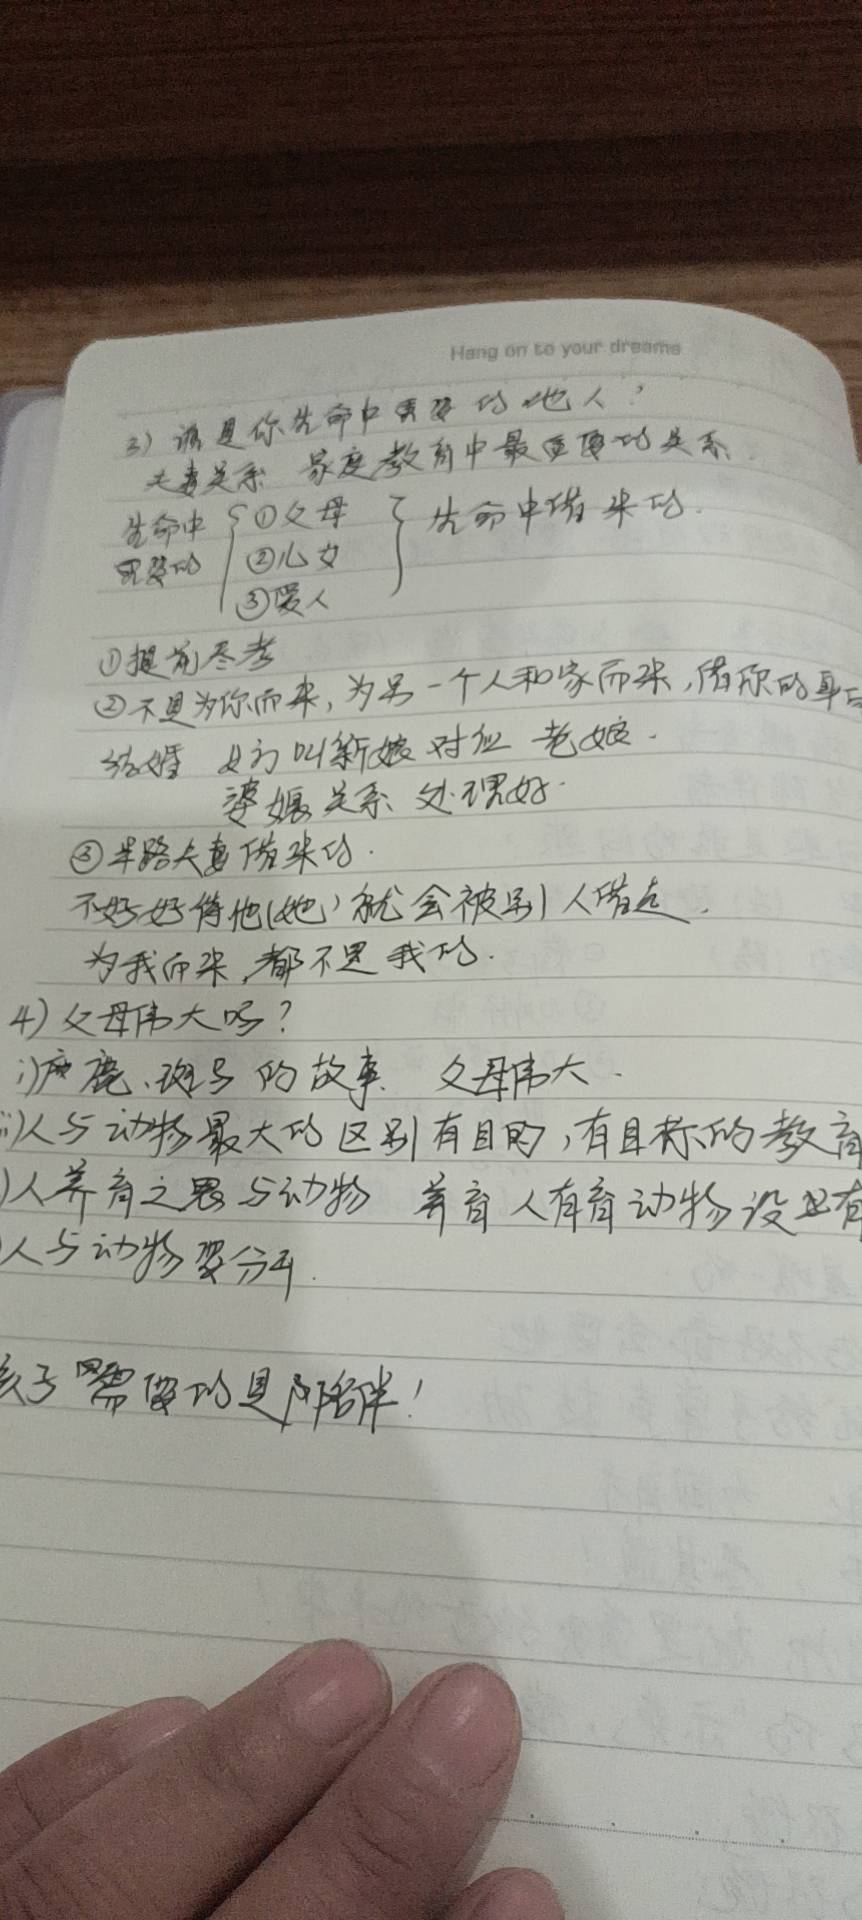 Hang on to your dreams
3) 谁是你生命中重要的他人?
夫妻关系 家庭教育中最重要的关系.
生命中 ①父母 生命中借来的.
重要的 ②儿女
③爱人
①提前尽孝
②不是为你而来,为另一个人和家而来,借你的
结婚 女方叫新娘对应 老娘.
婆娘关系处理好.
③半路夫妻借来的.
不好好待他(她)就会被别人借走.
为我而来,都不是我的.
4) 父母伟大吗?
i) 鹿、斑马的故事. 父母伟大.
ii)人与动物最大的区别有目的,有目标的教育
)人养育之恩与动物 养育人有育动物没有
)人与动物要分开.
孩子需要的是陪伴!